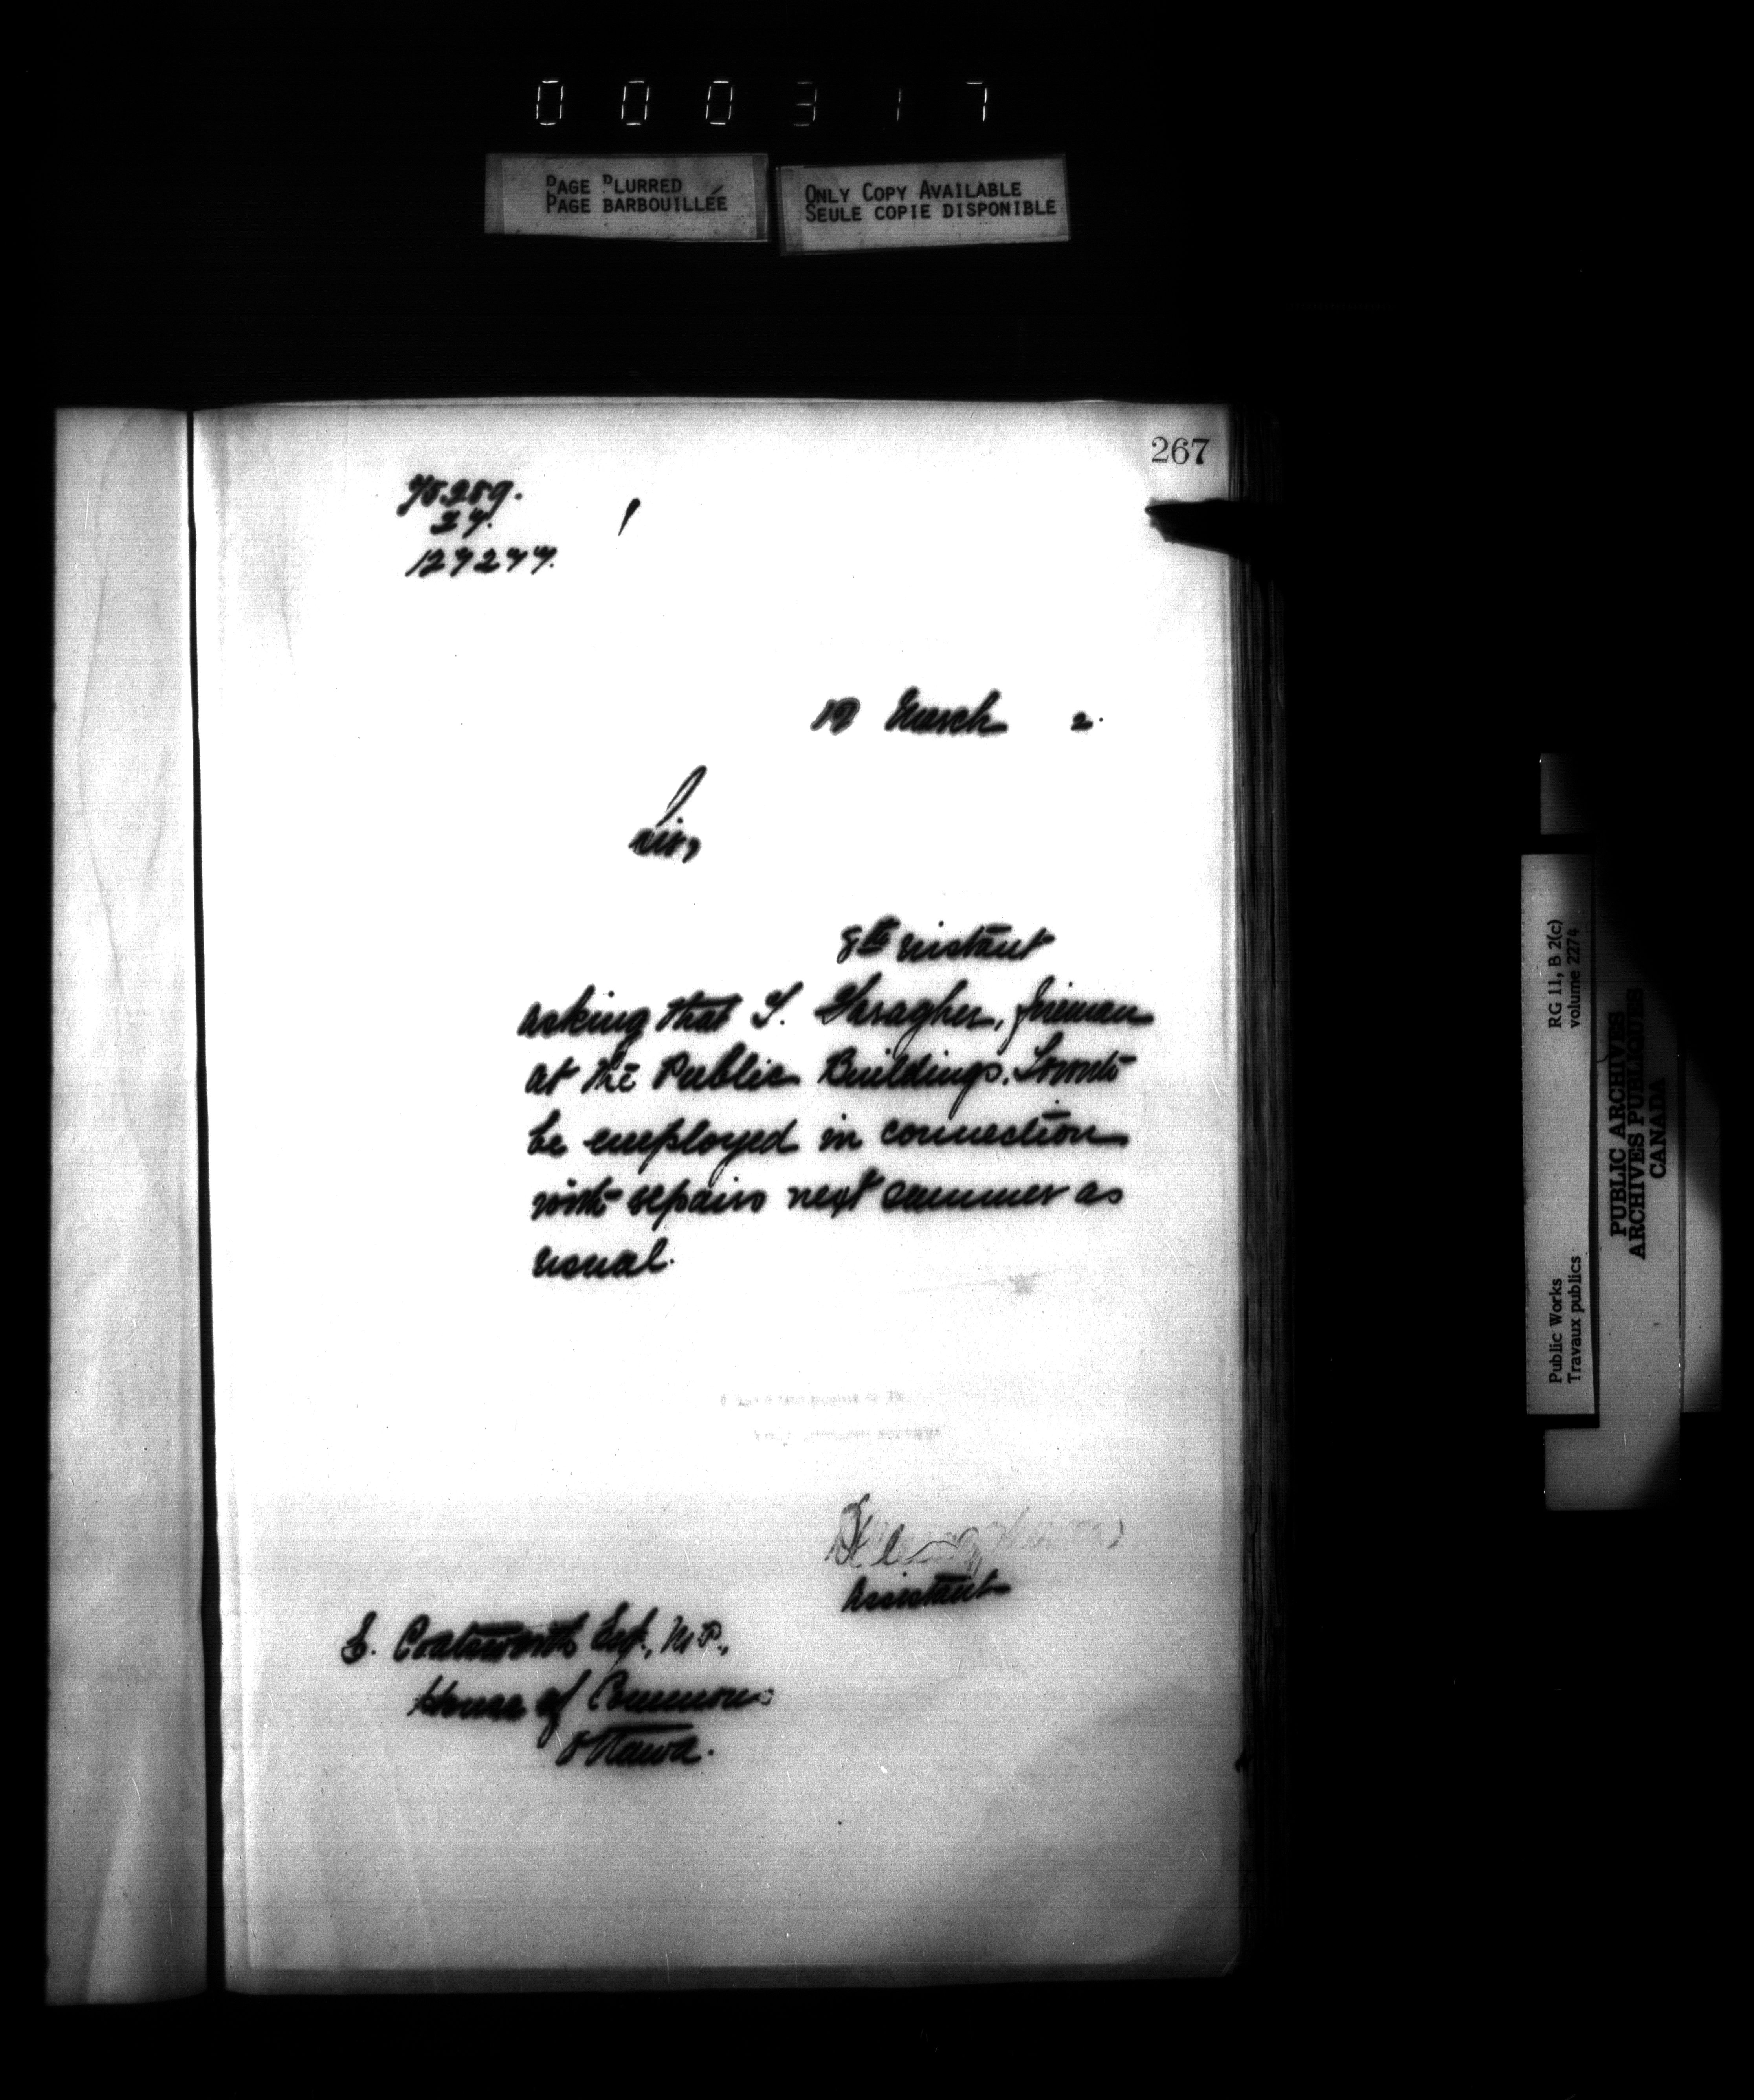 000317
PAGE BLURRED
PAGE BARBOUILLÉE
ONLY COPY AVAILABLE
SEULE COPIE DISPONIBLE
267
127277.
March 2.
Sir,
8th instant
asking that T. Garagher, fireman
at the Public Buildings, Toronto
be employed in connection
with repairs next summer as
usual.
Assistant
E. Coatsworth Esq., M.P.,
House of Commons
Ottawa.
Public Works
Travaux publics
RG 11, B 2(c)
volume 2274
PUBLIC ARCHIVES
ARCHIVES PUBLIQUES
CANADA